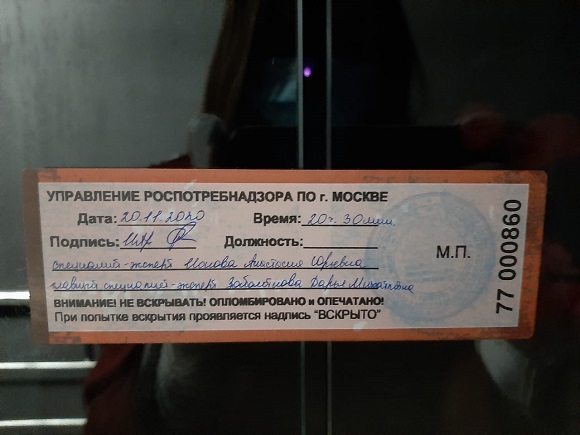 УПРАВЛЕНИЕ РОСПОТРЕБНАДЗОРА ПО г. МОСКВЕ
Дата: 20.11.2020 Время: 20ч. 30мин
Подпись: Должность:
М.П.
специалист-эксперт Ионова Анастасия Юрьевна
главный специалист-эксперт Заболотнова Дарья Михайловна
ВНИМАНИЕ! НЕ ВСКРЫВАТЬ! ОПЛОМБИРОВАНО и ОПЕЧАТАНО!
При попытке вскрытия проявляется надпись "ВСКРЫТО"
77 000860